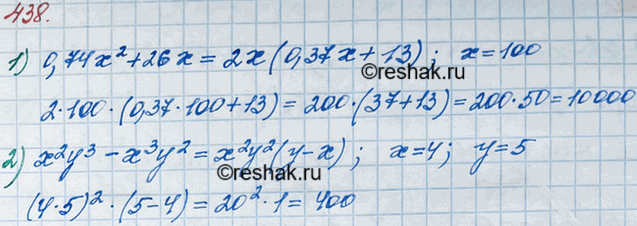 438.
1) 0,74x² + 26x = 2x(0,37x + 13); x = 100
©reshak.ru
2·100·(0,37·100+13) = 200·(37+13) = 200·50 = 10000
2) x²y³ − x³y² = x²y²(y−x); x=4; y=5
©reshak.ru
(4·5)²·(5−4) = 20²·1 = 400